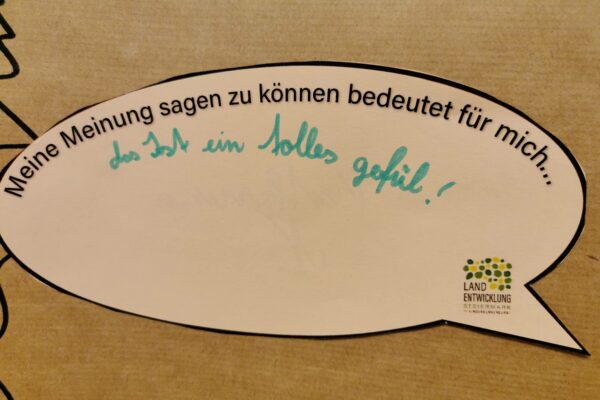 Meine Meinung sagen zu können bedeutet für mich...
das Ist ein tolles gefül!
LAND
ENTWICKLUNG
STEIERMARK